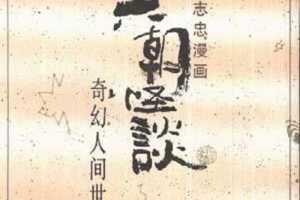 志忠漫画
六朝怪談
奇幻人间世